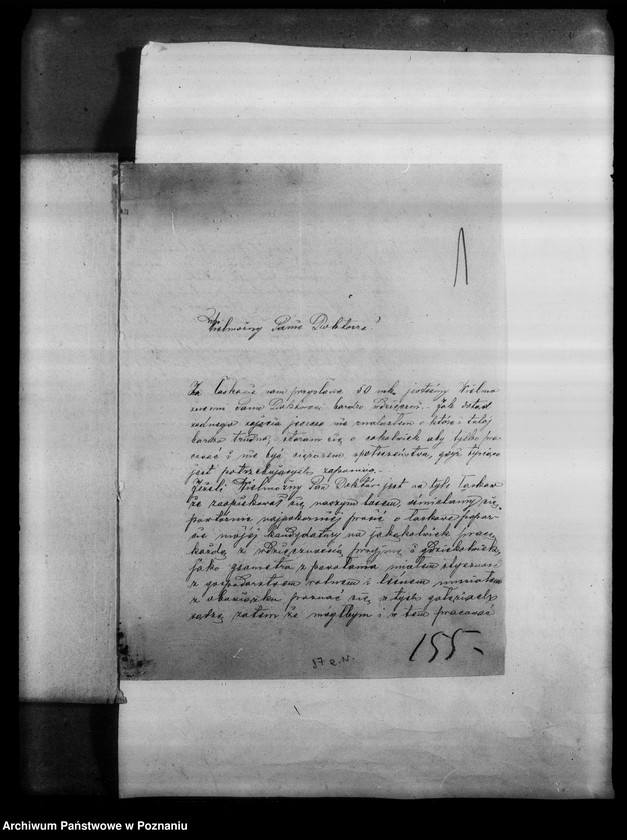 Wielmożny Panie Doktorze!
Za łaskawie nam przysłane 50 mk. jesteśmy Wielmo
żnemu Panu Doktorowi bardzo wdzięczni. Jak dotąd
żadnego zajęcia jeszcze nie znalazłem o które tutaj
bardzo trudno, staram się o cokolwiek aby tylko pra-
cować i nie być ciężarem społeczeństwa, gdyż tysiące
jest potrzebujących zapomogi.
Jeżeli Wielmożny Pan Doktór jest na tyle łaskaw
że zaopiekował się naszym losem, ośmielamy się
powtórnie najpokorniej prosić o łaskawe popar-
cie mojej kandydatury na jakąkolwiek pracę,
każdą z wdzięcznością przyjmę i gdziekolwiek,
jako geometra z powołania miałem styczność
z gospodarstwem rolnem i leśnem musiałem
z obowiązku poznać się z tych gałęziach
sądzę zatem że mógłbym i w tem pracować
155-
Archiwum Państwowe w Poznaniu